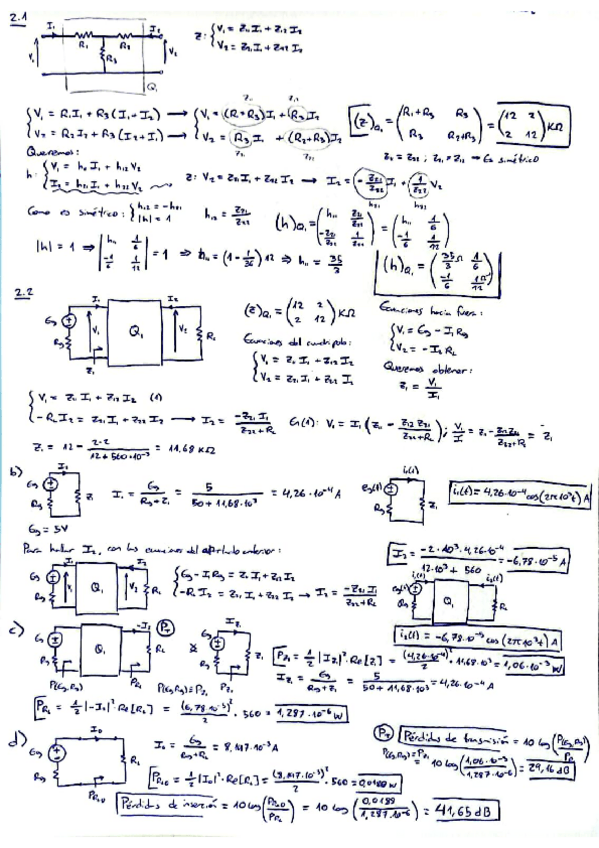 2.1
I₁ I₂ R₁ R₂ R₃ V₁ V₂ Q₁
z: { V₁ = Z₁₁ I₁ + Z₁₂ I₂
V₂ = Z₂₁ I₁ + Z₂₂ I₂
{ V₁ = R₁I₁ + R₃(I₁+I₂) → { V₁ = (R₁+R₃)I₁ + R₃ I₂
V₂ = R₂I₂ + R₃(I₂+I₁) → V₂ = R₃ I₁ + (R₂+R₃) I₂
(z)Q₁ = (R₁+R₃ R₃ / R₃ R₂+R₃) = (12 2 / 2 12) KΩ
Queremos:
h: { V₁ = h₁₁ I₁ + h₁₂ V₂
I₂ = h₂₁ I₁ + h₂₂ V₂
z: V₂ = Z₂₁ I₁ + Z₂₂ I₂ → I₂ = -Z₂₁/Z₂₂ I₁ + 1/Z₂₂ V₂
h₂₁ h₂₂
Como es simétrico: { h₁₂ = -h₂₁
|h| = 1
h₁₂ = Z₂₁/Z₂₂
(h)Q₁ = (h₁₁ Z₂₁/Z₂₂ / -Z₂₁/Z₂₂ 1/Z₂₂) = (h₁₁ 1/6 / -1/6 1/12)
|h| = 1 ⇒ |h₁₁ 1/6 / -1/6 1/12| = 1 ⇒ h₁₁ = (1 - 1/36) 12 ⇒ h₁₁ = 35/3
(h)Q₁ = (35/3 Ω 1/6 / -1/6 1/12 Ω⁻¹)
2.2
I₁ I₂ Eg Rg V₁ Q₁ V₂ R₁ Z₁
(z)Q₁ = (12 2 / 2 12) KΩ
Ecuaciones del cuadripolo:
{ V₁ = Z₁₁ I₁ + Z₁₂ I₂
V₂ = Z₂₁ I₁ + Z₂₂ I₂
Ecuaciones hacia fuera:
{ V₁ = Eg - I₁ Rg
V₂ = - I₂ RL
Queremos obtener:
Z₁ = V₁/I₁
{ V₁ = Z₁₁ I₁ + Z₁₂ I₂ (1)
-RL I₂ = Z₂₁ I₁ + Z₂₂ I₂ → I₂ = -Z₂₁ I₁/(Z₂₂+RL)
En (1): V₁ = I₁ (Z₁₁ - Z₁₂ Z₂₁/(Z₂₂+RL)); V₁/I₁ = Z₁₁ - Z₁₂Z₂₁/(Z₂₂+RL) = Z₁
Z₁ = 12 - 2·2/(12+560·10⁻³) = 11,68 KΩ
b)
Eg Rg I₁ Z₁
I₁ = Eg/(Rg+Z₁) = 5/(50+11,68·10³) = 4,26·10⁻⁴ A
eg(t) i₁(t) Rg Z₁
i₁(t) = 4,26·10⁻⁴ cos(2π10³t) A
Eg = 5V
Para hallar I₂, con las ecuaciones del apartado anterior:
{ Eg - I₁Rg = Z₁₁I₁ + Z₁₂I₂
-RL I₂ = Z₂₁ I₁ + Z₂₂ I₂ → I₂ = -Z₂₁ I₁/(Z₂₂+RL)
I₂ = -2·10³·4,26·10⁻⁴/(12·10³+560) = -6,78·10⁻⁵ A
i₂(t) = -6,78·10⁻⁵ cos(2π10³t) A
c)
Eg Rg Q₁ -I₂ RL P(Eg,Rg) PRL
P(Eg,Rg) = PZ₁
PZ₁ = 1/2 |IZ₁|² · Re[Z₁] = (4,26·10⁻⁴)²/2 · 11,68·10³ = 1,06·10⁻³ W
IZ₁ = Eg/(Rg+Z₁) = 5/(50+11,68·10³) = 4,26·10⁻⁴ A
PRL = 1/2 |-I₂|² · Re[RL] = (6,78·10⁻⁵)²/2 · 560 = 1,287·10⁻⁶ W
Pérdidas de transmisión = 10 log (P(Eg,Rg)/PRL)
P(Eg,Rg) = PZ₁ = 10 log (1,06·10⁻³/1,287·10⁻⁶) = 29,16 dB
d)
Eg Rg I₀ RL PRL₀
I₀ = Eg/(Rg+RL) = 8,197·10⁻³ A
PRL₀ = 1/2 |I₀|² · Re[RL] = (8,197·10⁻³)²/2 · 560 = 0,0188 W
Pérdidas de inserción = 10 log (PRL₀/PRL) = 10 log (0,0188/1,287·10⁻⁶) = 41,65 dB